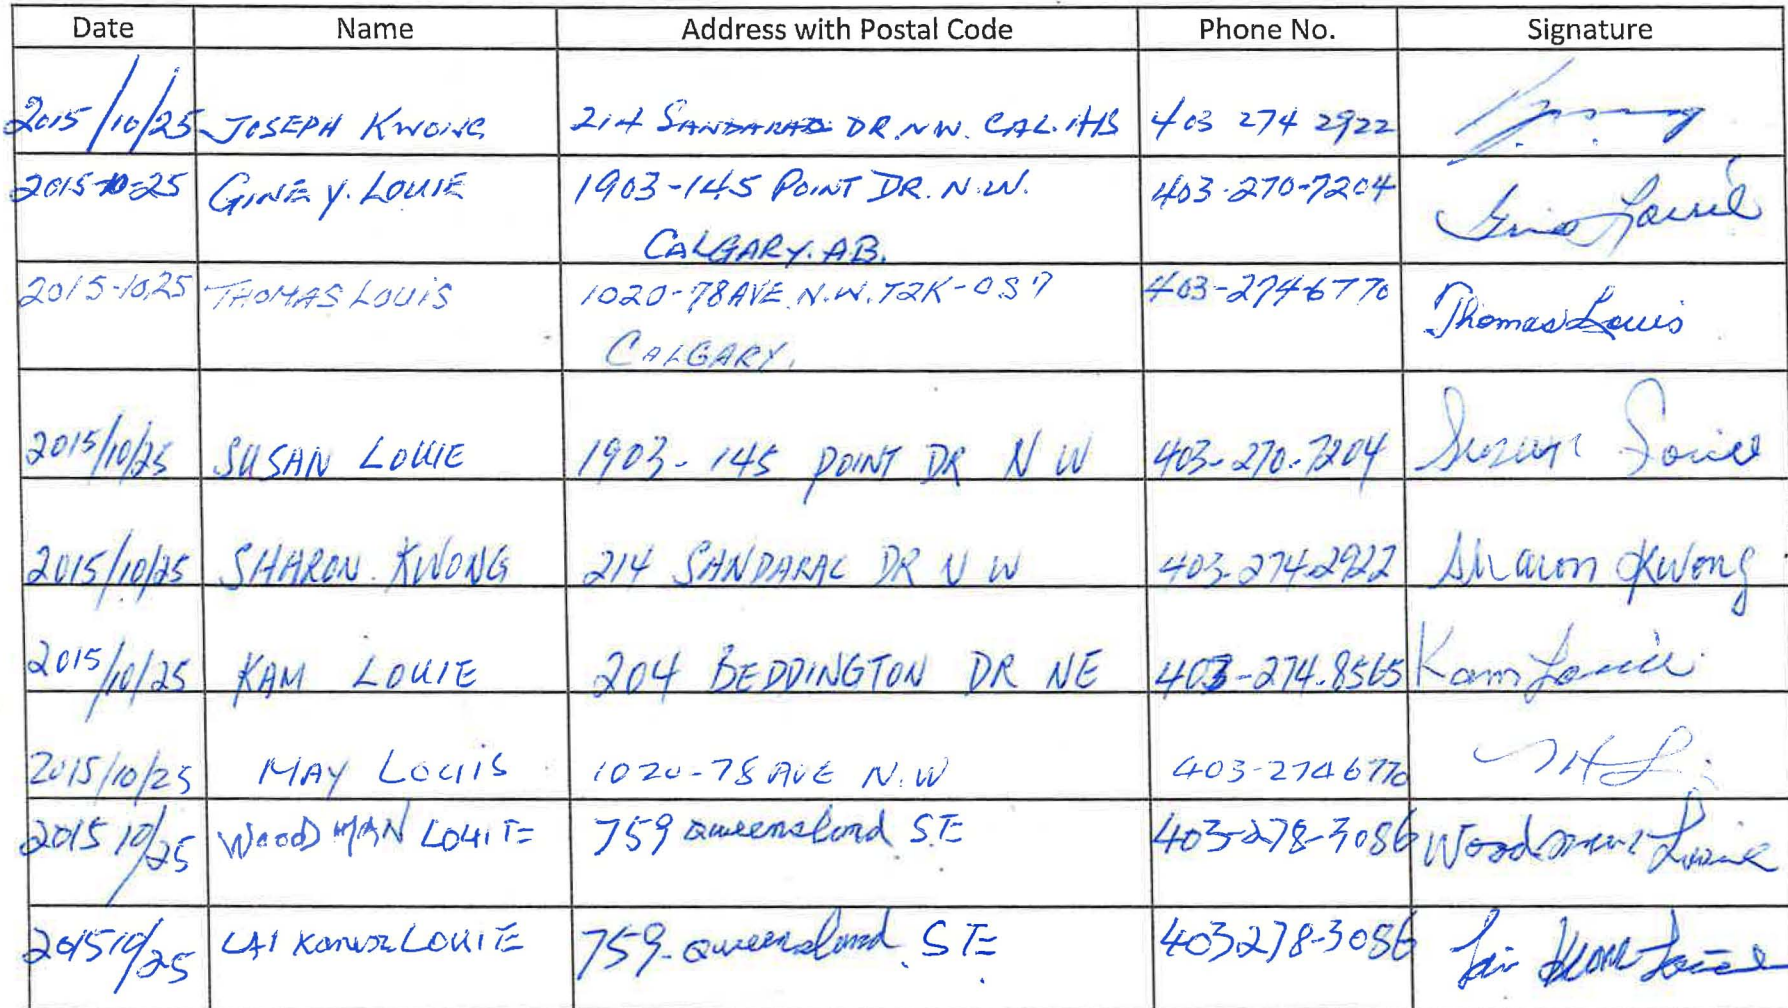 Date Name Address with Postal Code Phone No. Signature
2015/10/25 JOSEPH KWONG 214 SANDARAC DR. N.W. CAL. 403 274 2922
2015-10-25 GINE Y. LOUIE 1903-145 POINT DR. N.W. 403-270-7204 Gine Louie
CALGARY. AB.
2015-10.25 THOMAS LOUIS 1020-78 AVE. N.W. T2K-0S7 403-274-6770 Thomas Louis
CALGARY.
2015/10/25 SUSAN LOUIE 1903-145 POINT DR N W 403-270-7204 Susan Louie
2015/10/25 SHARON KWONG 214 SANDARAC DR N W 403-274-2922 Sharon Kwong
2015/10/25 KAM LOUIE 204 BEDDINGTON DR NE 403-274.8565 Kam Louie
2015/10/25 MAY LOUIS 1020-78 AVE N.W 403-274 6770
2015 10/25 WOODMAN LOUIE 759 Queensland S.E 403-278-3086 Woodman Louie
2015 10/25 LAI LOUIE 759 Queensland S E 403 278-3086 Louie